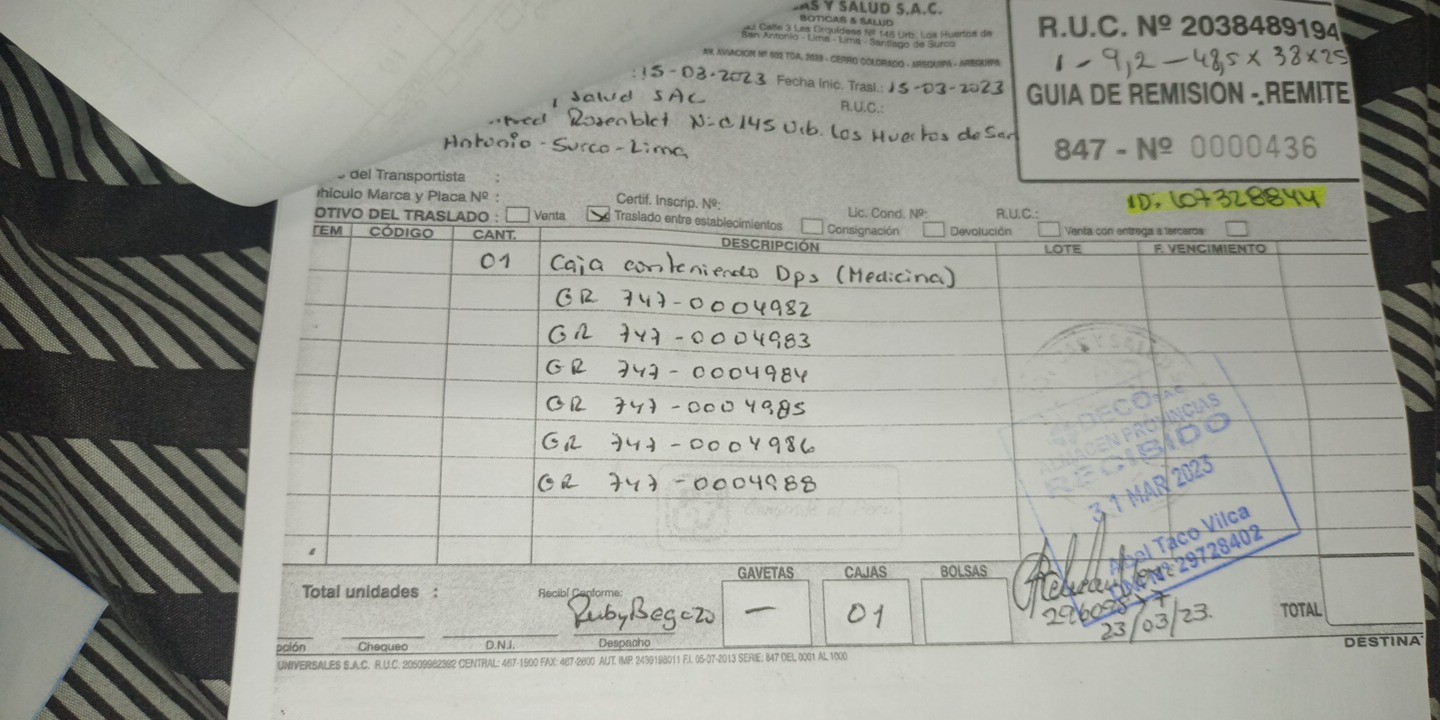 AS Y SALUD S.A.C.
BOTICAS & SALUD
Calle 3 Las Orquídeas Nº 145 Urb. Los Huertos de
San Antonio - Lima - Lima - Santiago de Surco
AV. AVIACION Nº 602 TDA. - CERRO COLORADO - AREQUIPA - AREQUIPA
R.U.C. Nº 2038489194
1 - 9,2 - 48,5 x 38 x 25
GUIA DE REMISION - REMITE
847 - Nº 0000436
: 15-03-2023 Fecha Inic. Trasl.: 15-03-2023
Salud SAC R.U.C.:
Rosenblet N-C145 Urb. Los Huertos de San
Antonio - Surco - Lima
del Transportista :
hículo Marca y Placa Nº : Certif. Inscrip. Nº: Lic. Cond. Nº: R.U.C.:
ID: 107328844
OTIVO DEL TRASLADO : Venta Traslado entre establecimientos Consignación Devolución Venta con entrega a terceros
TEM CÓDIGO CANT. DESCRIPCIÓN LOTE F. VENCIMIENTO
01 Caja conteniendo Dps (Medicina)
GR 747-0004982
GR 747-0004983
GR 747-0004984
GR 747-0004985
GR 747-0004986
GR 747-0004988
DECO SAC
ALMACEN PROVINCIAS
RECIBIDO
31 MAR 2023
Abel Taco Vilca
29728402
23/03/23.
GAVETAS CAJAS BOLSAS
Total unidades : Recibí Conforme: — 01 TOTAL
Ruby Begazo
pción Chequeo D.N.I. Despacho DESTINA
UNIVERSALES S.A.C. R.U.C. 20509962392 CENTRAL: 467-1900 FAX: 467-2600 AUT. IMP. 2439198011 F.I. 05-07-2013 SERIE: 847 DEL 0001 AL 1000